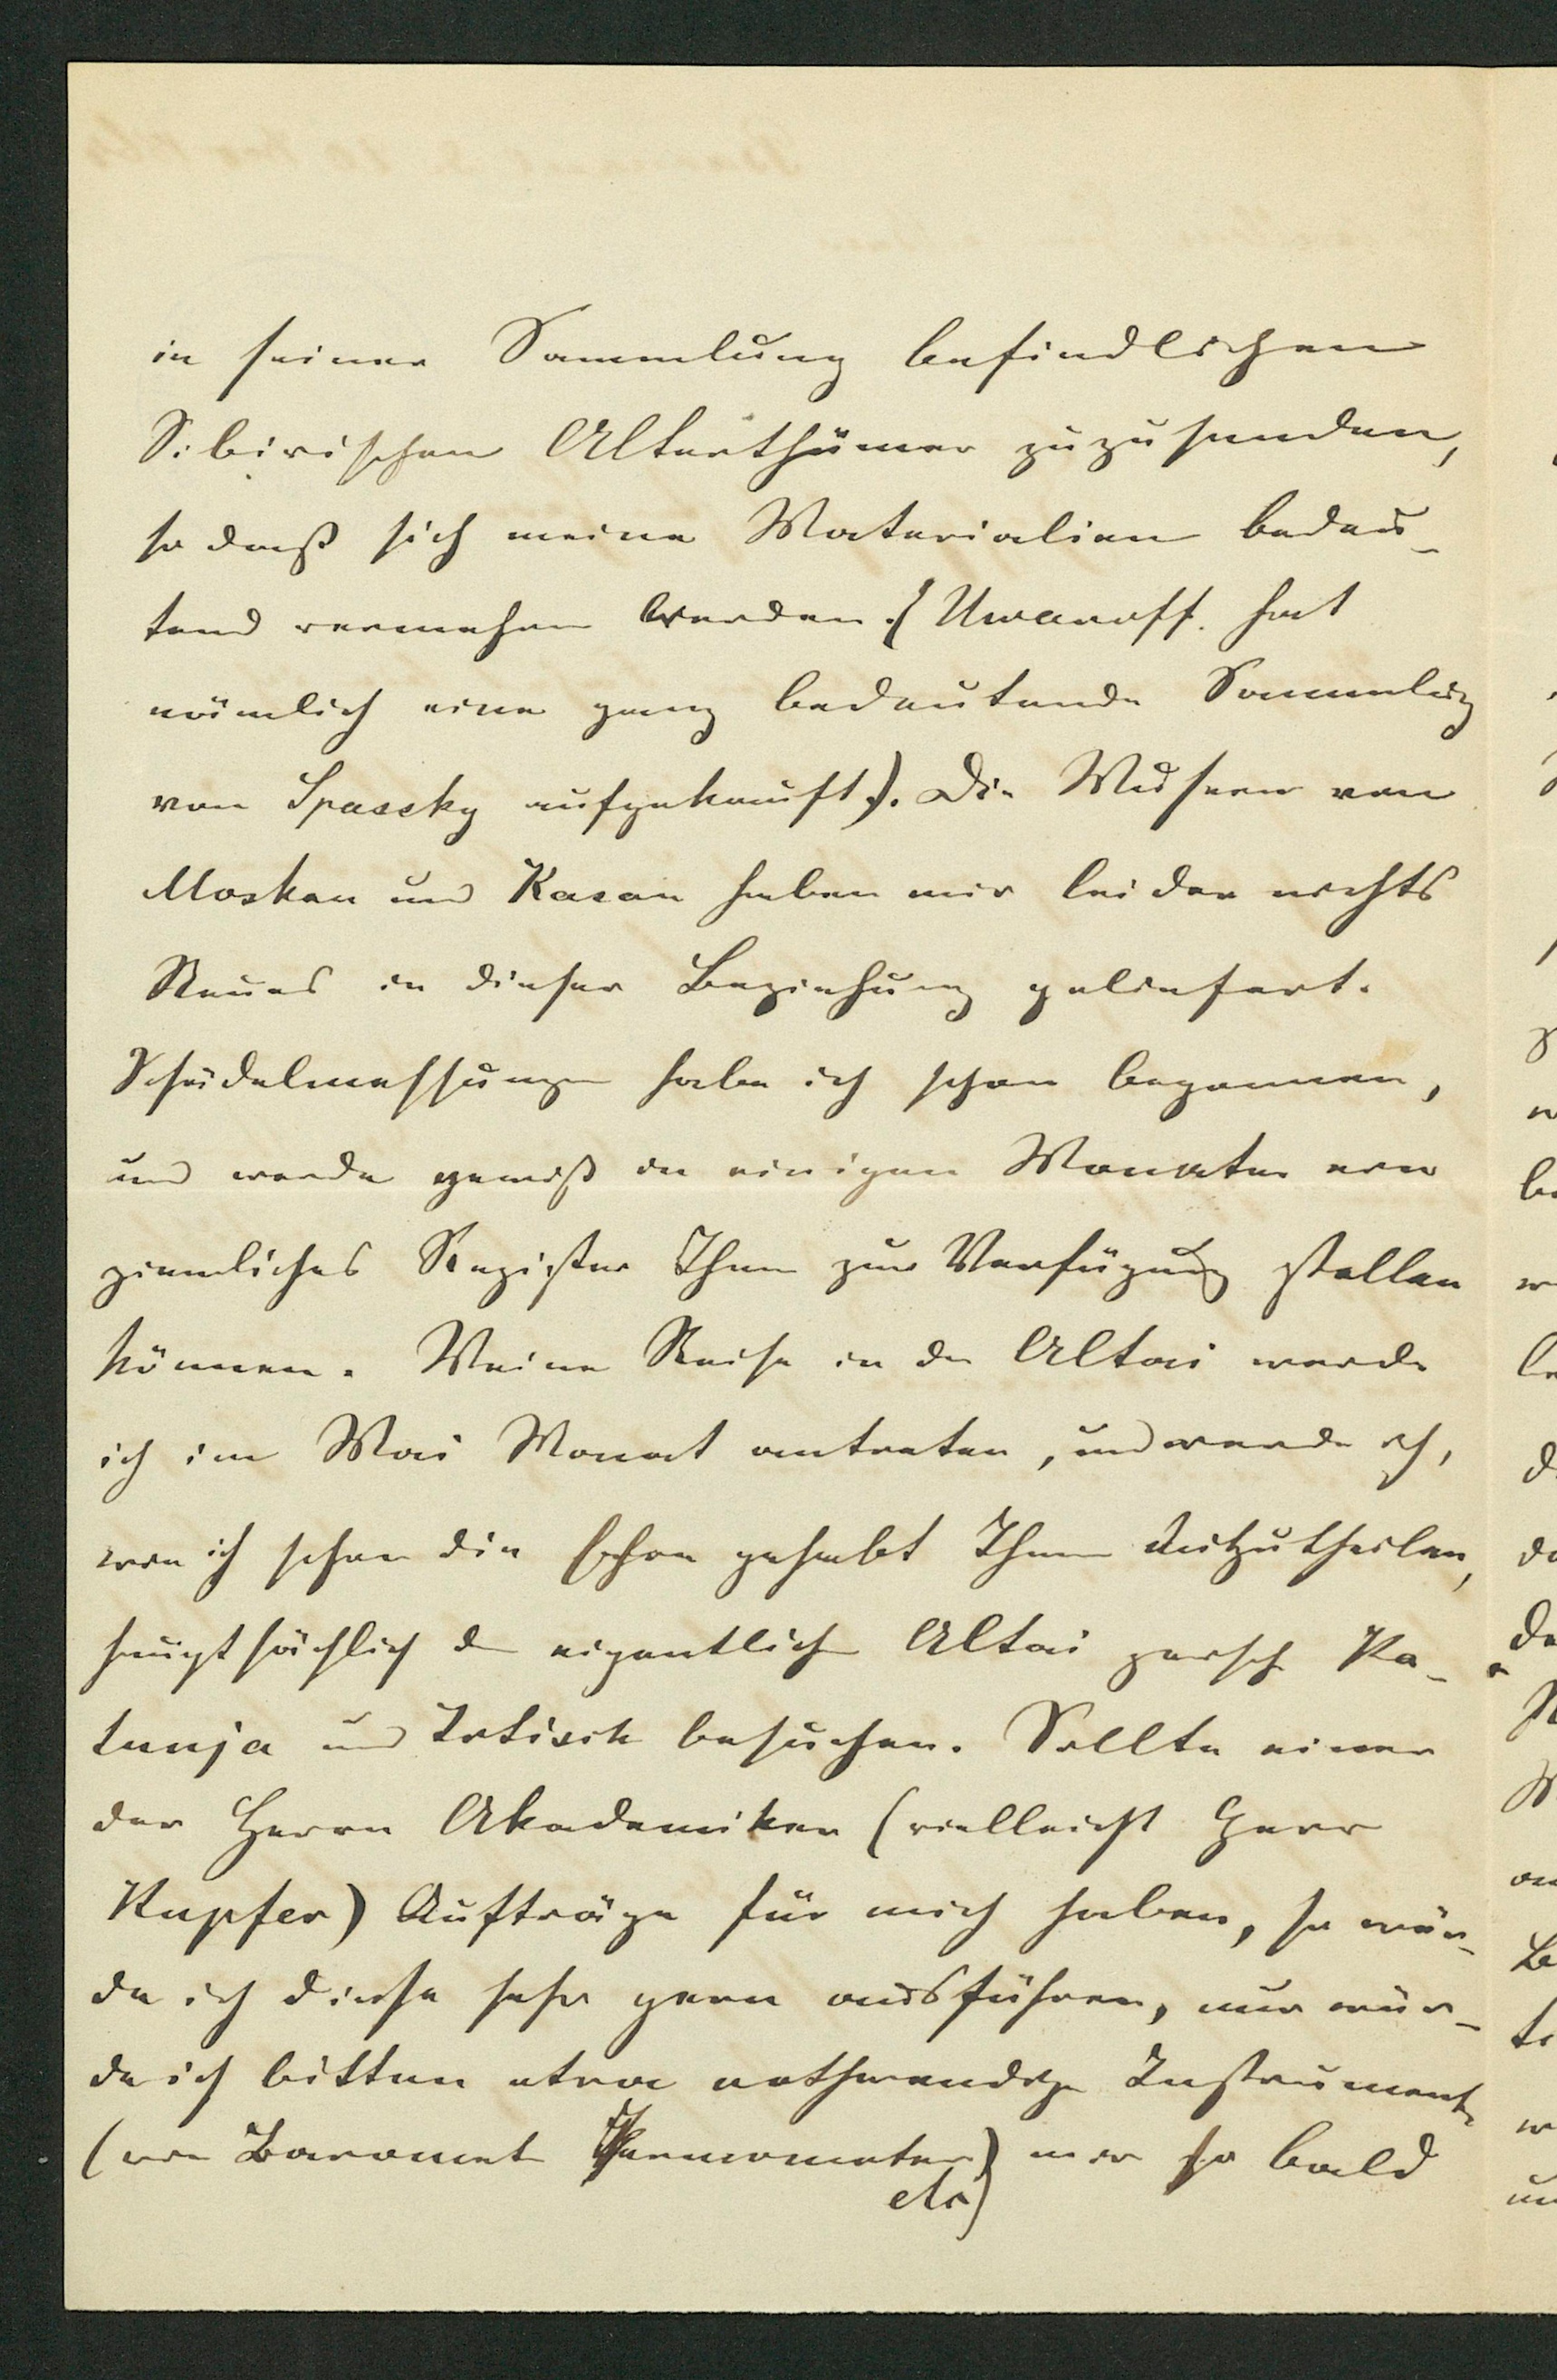 in seiner Sammlung befindlichen
Sibirischen Alterthümer zuzusenden,
so daß sich meine Materialien bedeu-
tend vermehren werden. (Uwaroff hat
nämlich eine ganz bedeutende Sammlung
von Spassky aufgekauft). Die Museen von
Moskau und Kasan haben mir leider nichts
Neues in dieser Beziehung geliefert.
Schädelmessungen habe ich schon begonnen,
und werde gewiß in einigen Monaten ein
ziemliches Register Ihnen zur Verfügung stellen
können. Meine Reise in den Altai werde
ich im Mai Monat antreten, und werde ich,
wie ich schon die Ehre gehabt Ihnen mitzutheilen,
hauptsächlich den eigentlichen Altai zwisch Ka-
tunja und Irtisch besuchen. Sollte einer
der Herrn Akademiker (vielleicht Herr
Kupfer) Aufträge für mich haben, so wür-
de ich diese sehr gern ausführen, nur wür-
de ich bitten etwa nothwendige Instrumente
(wie Baromet Thermometer) mir so bald
etc)